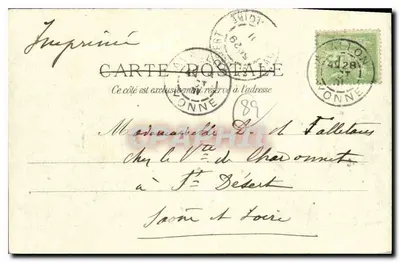 Imprimé
CARTE POSTALE
Ce côté est exclusivement réservé à l'adresse
AVALLON
28
YONNE
YONNE
(89)
Mademoiselle E. de Falletans
chez le Vte de Chardonnet
à St Désert
Saône et Loire